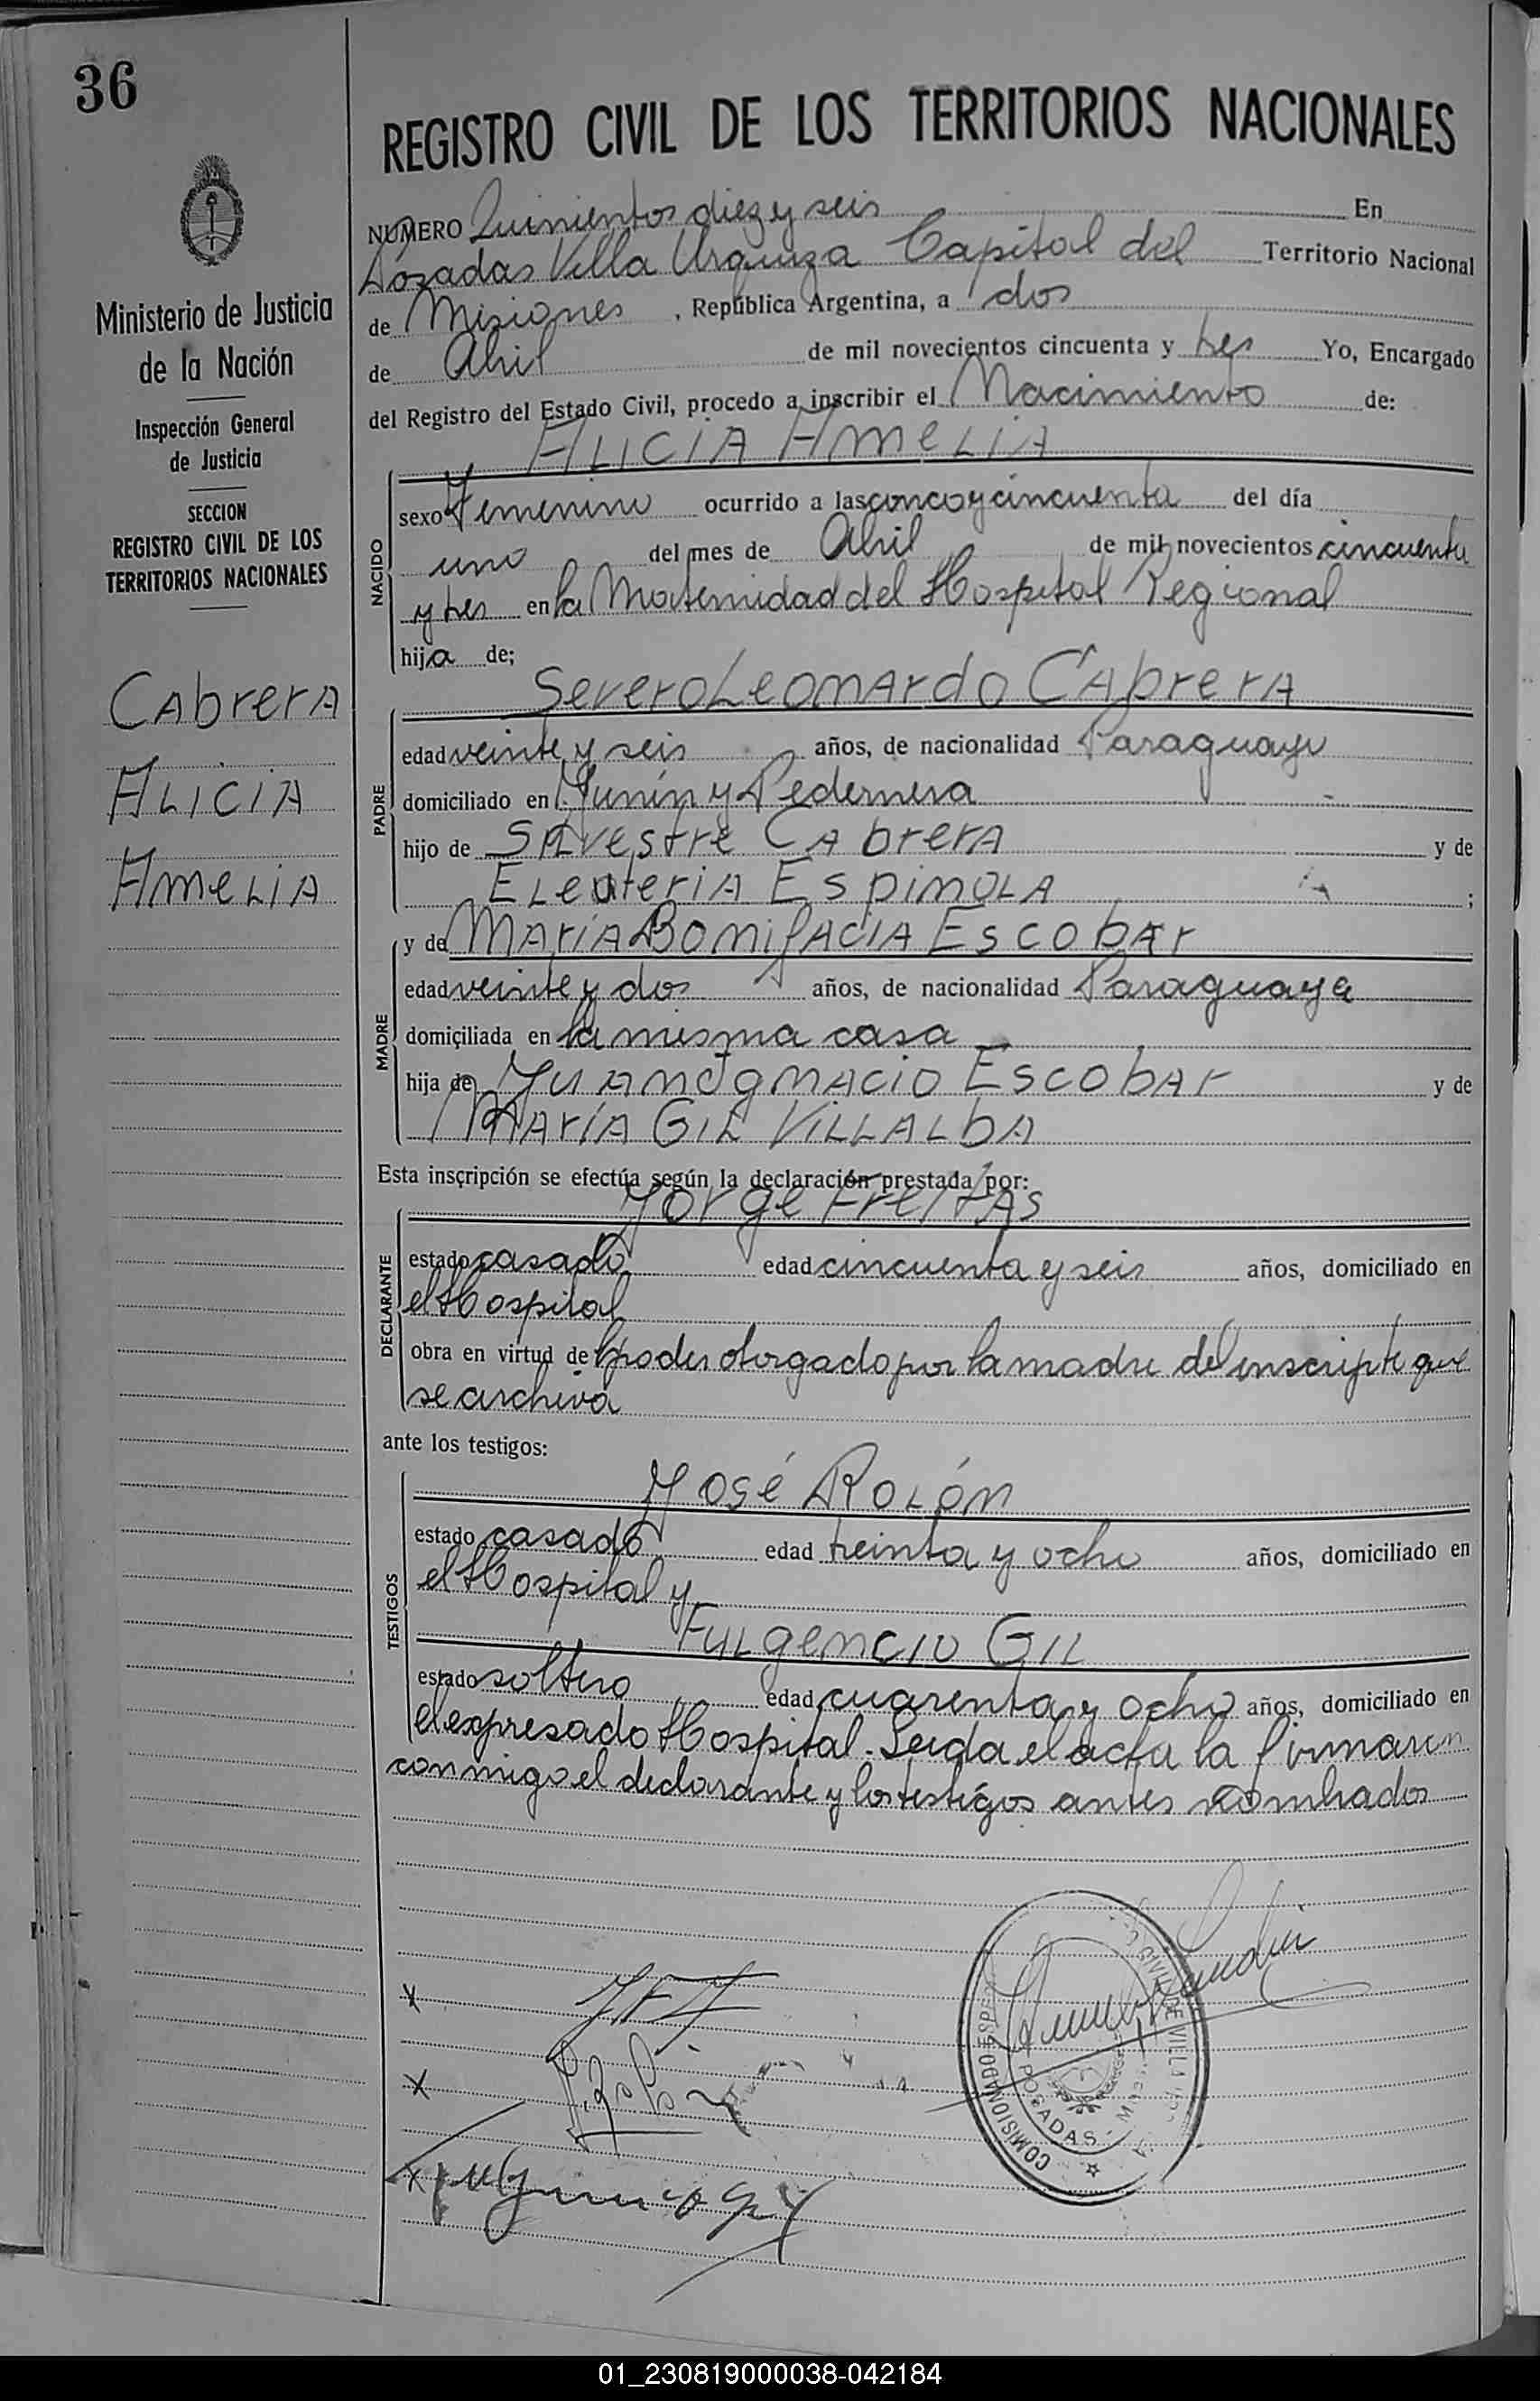 36
Ministerio de Justicia
de la Nación
Inspección General
de Justicia
SECCION
REGISTRO CIVIL DE LOS
TERRITORIOS NACIONALES
Cabrera
Alicia
Amelia
REGISTRO CIVIL DE LOS TERRITORIOS NACIONALES
NUMERO Quinientos diez y seis En
Posadas Villa Urquiza Capital del Territorio Nacional
de Misiones, República Argentina, a dos
de Abril de mil novecientos cincuenta y tres Yo, Encargado
del Registro del Estado Civil, procedo a inscribir el Nacimiento de:
ALICIA AMELIA
NACIDO
sexo Femenino ocurrido a las conco y cincuenta del día
uno del mes de Abril de mil novecientos cincuenta
y tres en la Maternidad del Hospital Regional
hija de;
Severo Leonardo Cabrera
PADRE
edad veinte y seis años, de nacionalidad Paraguayo
domiciliado en Junín y Pedernera
hijo de Silvestre Cabrera y de
Eleuteria Espinola ;
MADRE
y de María Bonifacia Escobar
edad veinte y dos años, de nacionalidad Paraguaya
domiciliada en la misma casa
hija de Juan Ignacio Escobar y de
María Gil Villalba
Esta inscripción se efectúa según la declaración prestada por:
Jorge Freitas
DECLARANTE
estado casado edad cincuenta y seis años, domiciliado en
el Hospital
obra en virtud de poder otorgado por la madre del inscripte que
se archiva
ante los testigos:
José Rolón
TESTIGOS
estado casado edad treinta y ocho años, domiciliado en
el Hospital y
Fulgencio Gil
estado soltero edad cuarenta y ocho años, domiciliado en
el expresado Hospital. Leida el acta la firmaron
conmigo el declarante y los testigos antes nombrados
x
x
x Fulgencio Gil
COMISIONADO
POSADAS
01_230819000038-042184